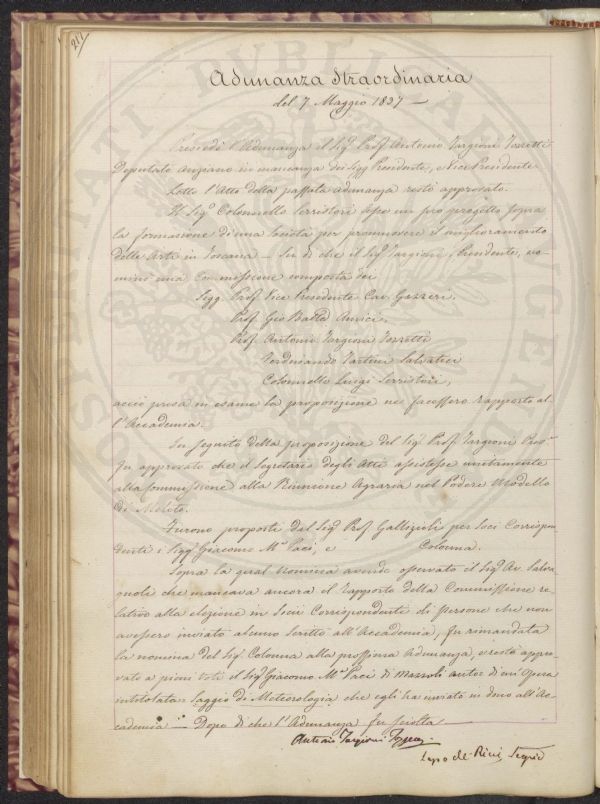 211
Adunanza Straordinaria
del 7. Maggio 1837 —
Presiedè l'Adunanza il Sig.e Prof. Antonio Targioni Tozzetti
Deputato anziano in mancanza dei Sigg. Presidente, e Vice Presidente
Letto l'Atto della passata adunanza restò approvato.
Il Sig.e Colonnello Serristori lesse un suo progetto sopra
la formazione di una Società per promuovere il miglioramento
delle Arti in Toscana — Su di che il Sig.e Targioni, Presidente, no-
minò una Commissione composta dei
Sigg. Prof. Vice Presidente Cav. Gazzeri,
Prof. Gio Batta Amici,
Prof. Antonio Targioni Tozzetti
Ferdinando Tartini Salvatici
Colonnello Luigi Serristori,
acciò presa in esame la proposizione ne facessero rapporto al-
l'Accademia.
In seguito della proposizione del Sig.e Prof. Targioni
fu approvato che il Segretario degli Atti assistesse unitamente
alla Commissione alla Riunione Agraria nel Podere Modello
di Meleto.
Furono proposti dal Sig.e Prof. Gallizioli per Soci Corrispon
denti i Sigg.i Giacomo M.a Paci, e Colonna.
Sopra la qual nomina avendo osservato il Sig.e Av. Salva
gnoli che mancava ancora il rapporto della Commissione re-
lativo alla elezione in Socii Corrispondenti di persone che non
avessero inviato alcuno scritto all'Accademia, fu rimandata
la nomina del Sig.e Colonna alla prossima Adunanza, e restò appro-
vato a pieni voti il Sig.e Giacomo M.a Paci di autor di un'Opera
intitolata: Saggio di Meteorologia che egli ha inviato in dono all'Ac-
cademia — Dopo di che l'Adunanza fu sciolta —
Antonio Targioni Tozzetti
Lapo de Ricci Segrio